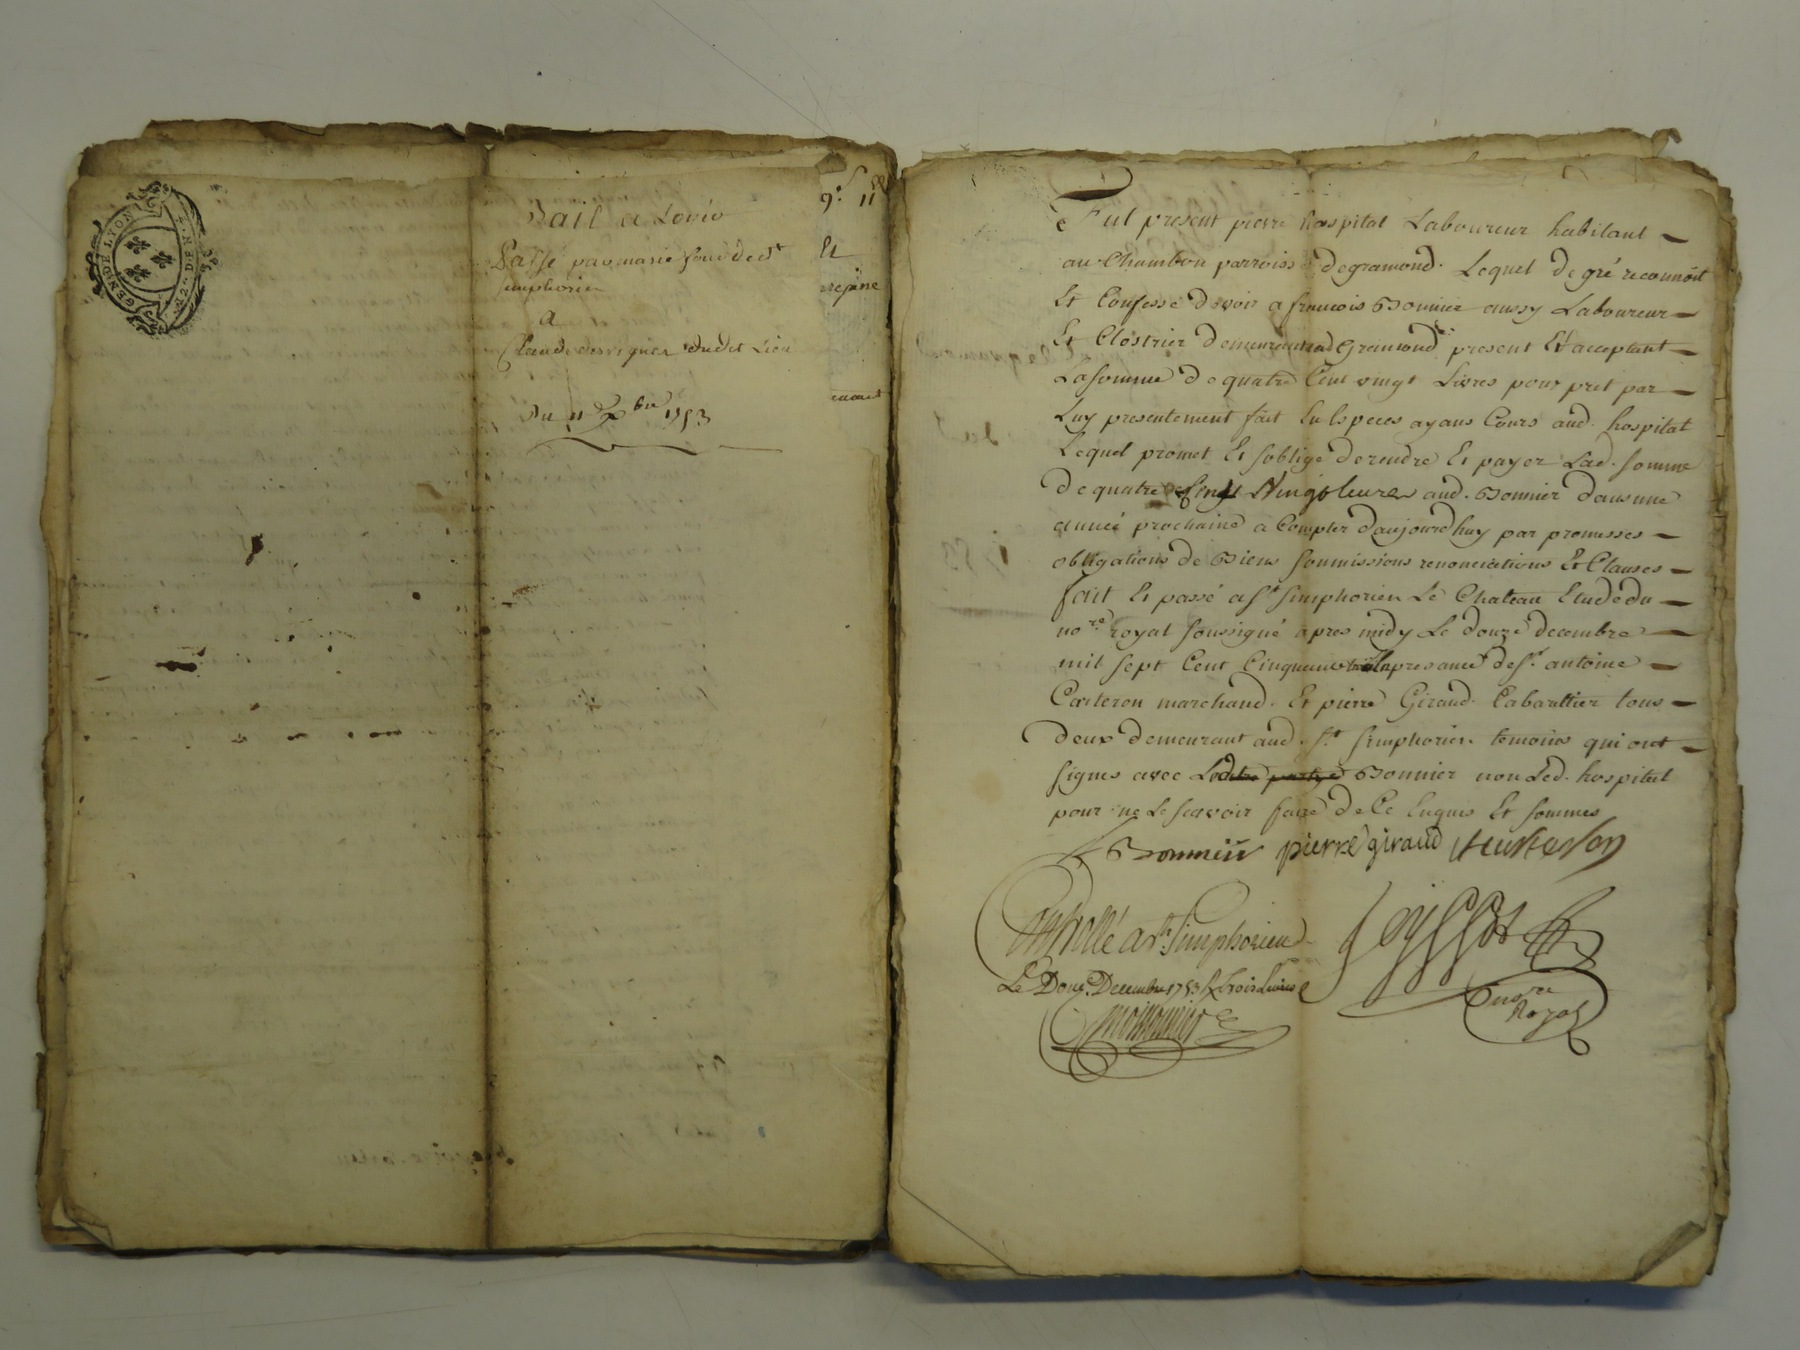 GEN. DE LYON
Bail a Loüio
Passé par marie foucd de St
simphorien
a
Claude desvignes dudit Lieu
Du 11e Xbre 1753
9e 11
Et
Fut present pierre hospital Laboureur habitant
au Chambon parroisse degramond. Lequel de gré reconnoit
Et Confesse devoir a francois Bonnier aussy Laboureur
Et Clostrier demeurant aud Gramond present Et acceptant
La somme de quatre Cent vingt Livres pour pret par
Luy presentement fait En Especes ayans Cours aud. hospital
Lequel promet Et soblige de rendre Et payer Lad. somme
de quatre Cent Vingt Livres aud. Bonnier dans une
année prochaine a Compter daujourdhuy par promesses
obligations de Biens soumissions renonciations Et Clauses
fait Et passé a St simphorien Le Chateau Etude du
nore royal soussigné apres midy Le douze decembre
mil sept Cent Cinquante trois En presance de sr. antoine
Carteron marchand. Et pierre Giraud. Cabarettier tous
deux demeurant aud. St simphorien temoins qui ont
signes avec Ledit partyes Bonnier non Led. hospital
pour ne Le scavoir faire de Ce Enquis Et sommes
Bonnier pierre giraud
Controllé a St. Simphorien
Le Douze Decembre 1753 R trois Livres
nore
Royal